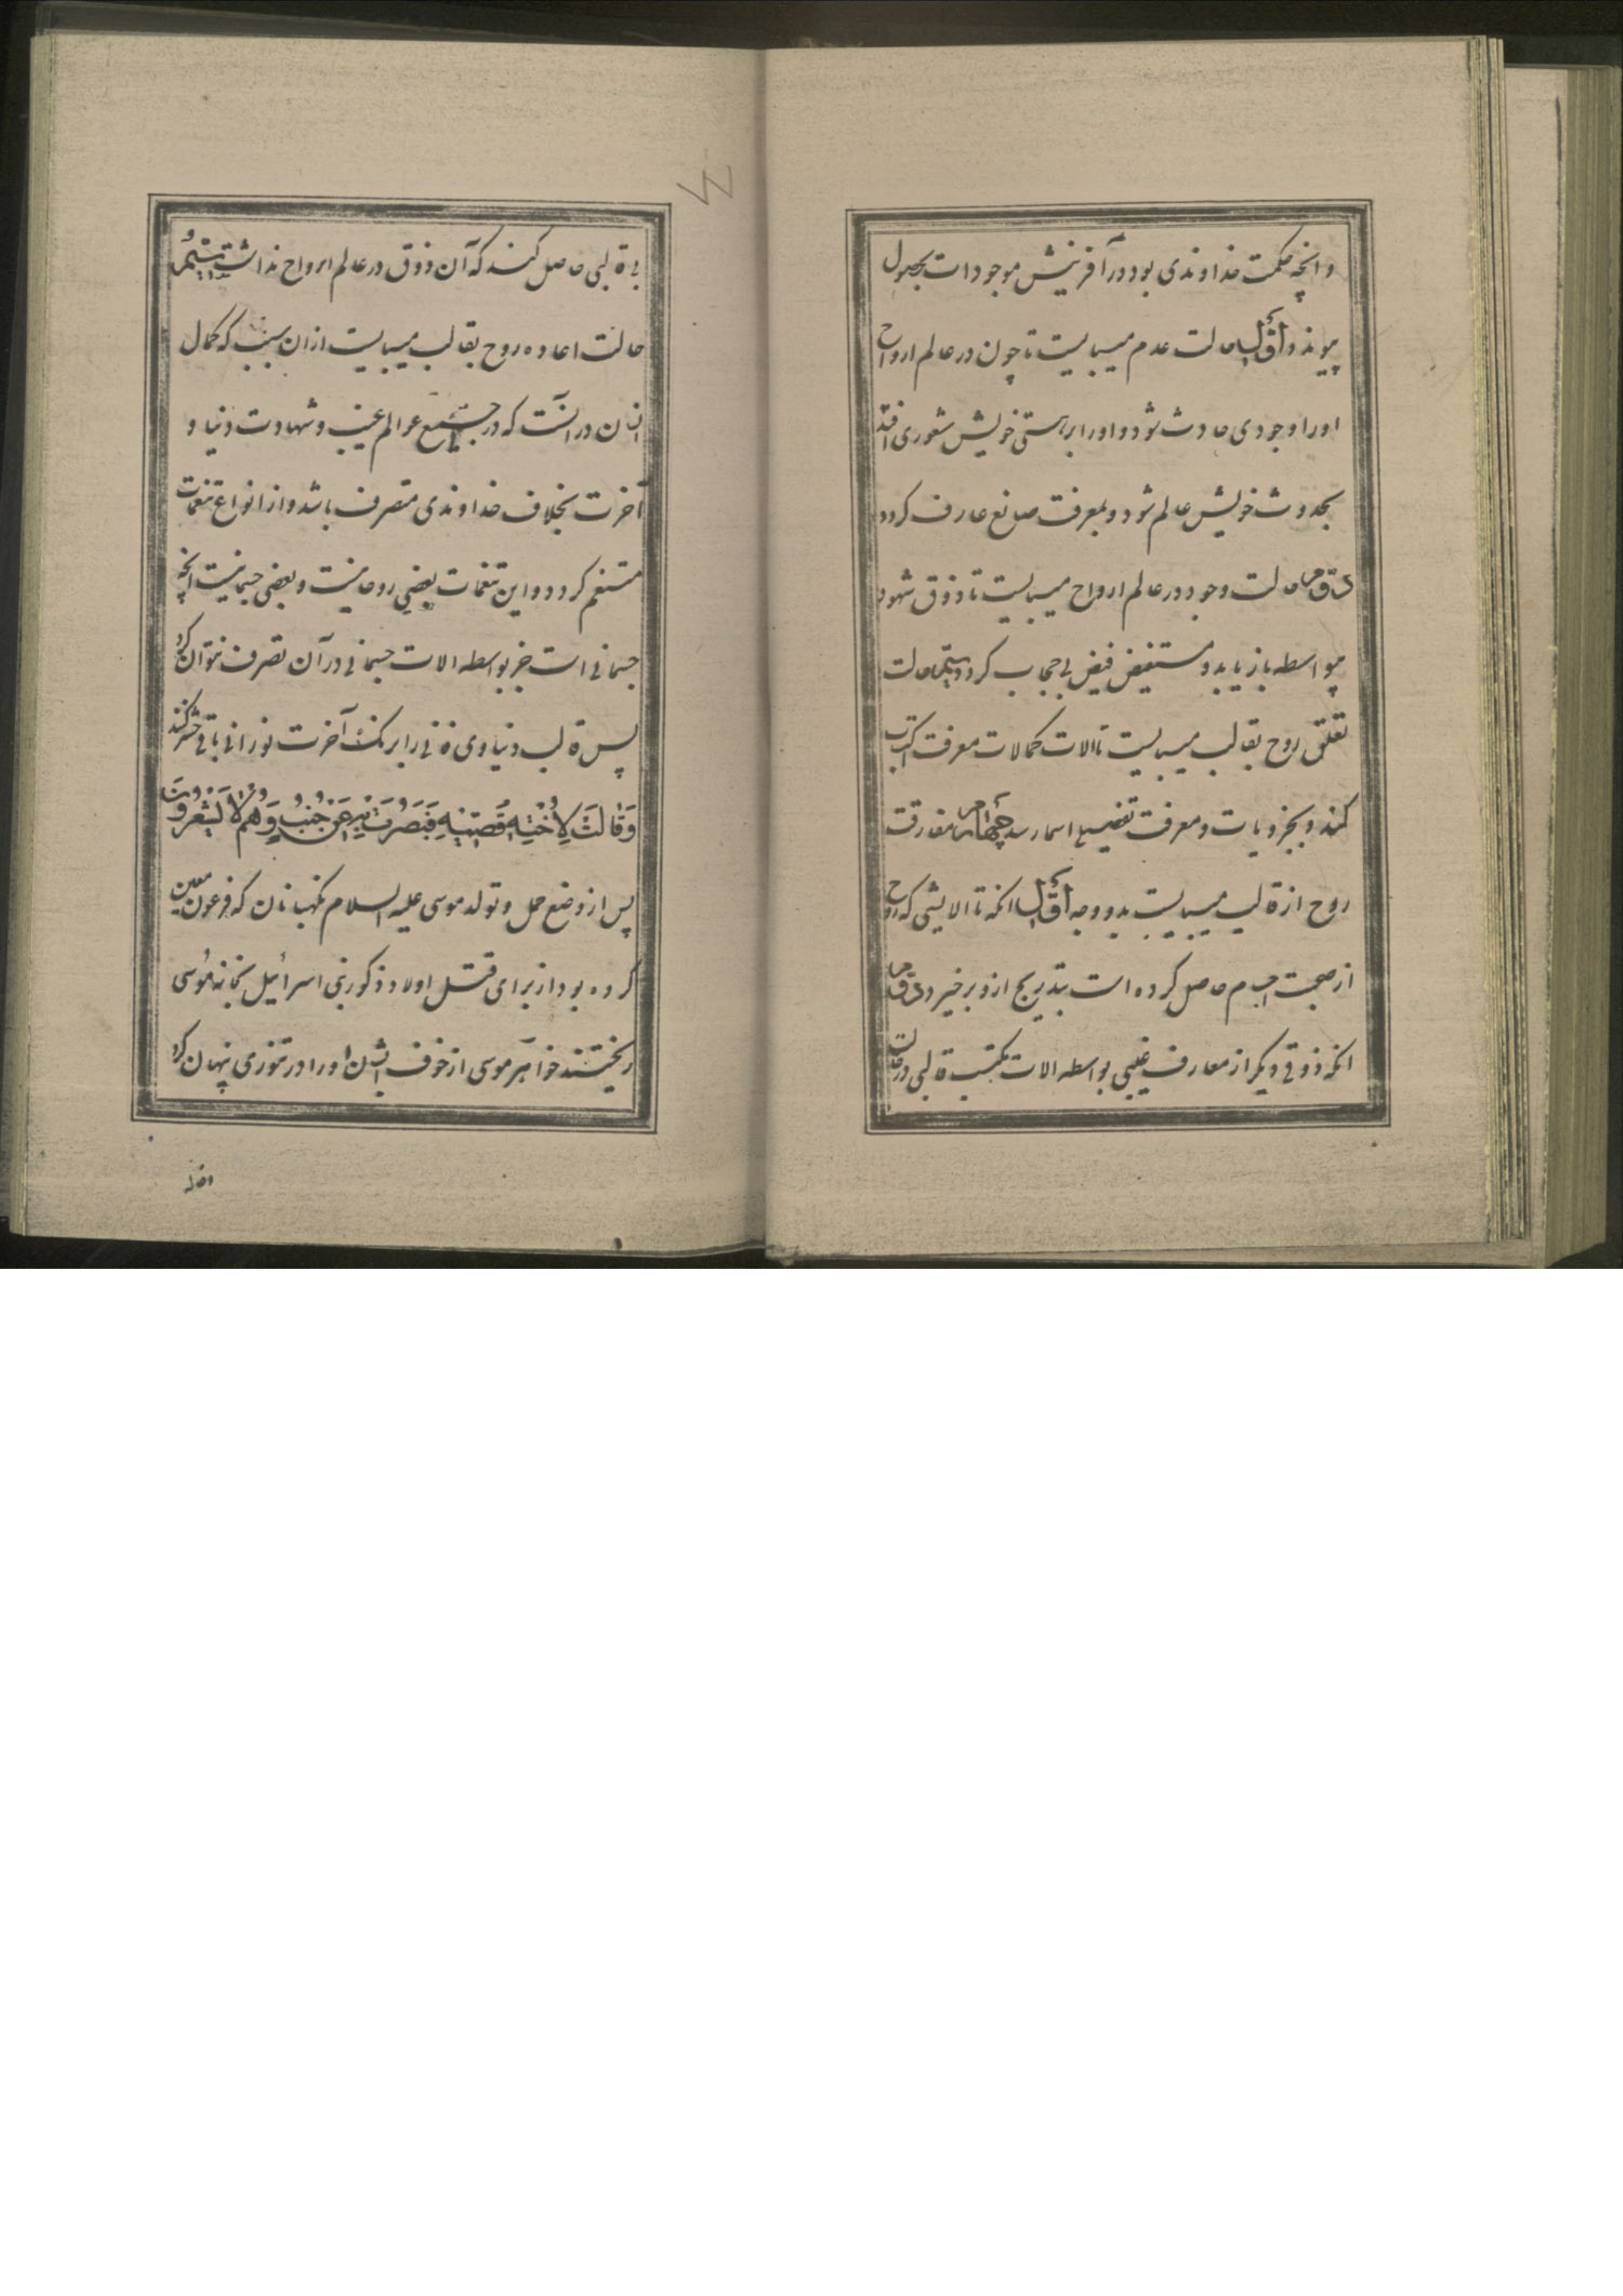 وانچه حکمت خداوندی بود در آفرینش موجودات بحصول
پیوندد أوّل حالت عدم میبایست تا چون در عالم ارواح
اورا وجودی حادث شود و اورا بر هستی خویش شعوری افتد
بحدوث خویش عالم شود و بمعرفت صانع عارف کردد
دوّم حالت وجود در عالم ارواح میبایست تا ذوق شهود
بیواسطه بازیابد و مستفیض فیض بی حجاب کردد سیّم حالت
تعلق روح بقالب میبایست تا الات کمالات معرفت اکتساب
کند و بجزویات و معرفت تفصیل اسما رسد چهارم مفارقت
روح از قالب میبایست بدو وجه أوّل انکه تا الایشی که روح
از صحبت اجسام حاصل کرده است بتدریج ازو برخیزد دوّم
انکه ذوقی دیکر از معارف غیبی بواسطه الات مکتسب قالبی در حالت
بی قالبی حاصل کند که آن ذوق در عالم ارواح نداشت پنجم
حالت اعاده روح بقالب میبایست ازان سبب که کمال
انسان در انست که در جمیع عوالم غیب و شهادت دنیا و
آخرت بخلافت خداوندی متصرف باشد و از انواع تنعمات
متنعم کردد و این تنعمات بعضی روحانیست و بعضی جسمانیست انچه
جسمانی است جز بواسطه الات جسمانی در آن تصرف نتوان کرد
پس قالب دنیاوی فانی را برنک آخرت نورانی باقی حشر کنند
وَقَالَتْ لِأُخْتِهِ قُصِّيهِ فَبَصُرَتْ بِهِ عَنْ جُنُبٍ وَهُمْ لَا يَشْعُرُونَ
پس از وضع حمل و تولد موسی علیه السلام نکهبانان که فرعون معین
کرده بود از برای قتل اولاد ذکور بنی اسرائیل بخانه موسی
ریختند خواهر موسی از خوف ایشان اورا در تنوری پنهان کرد